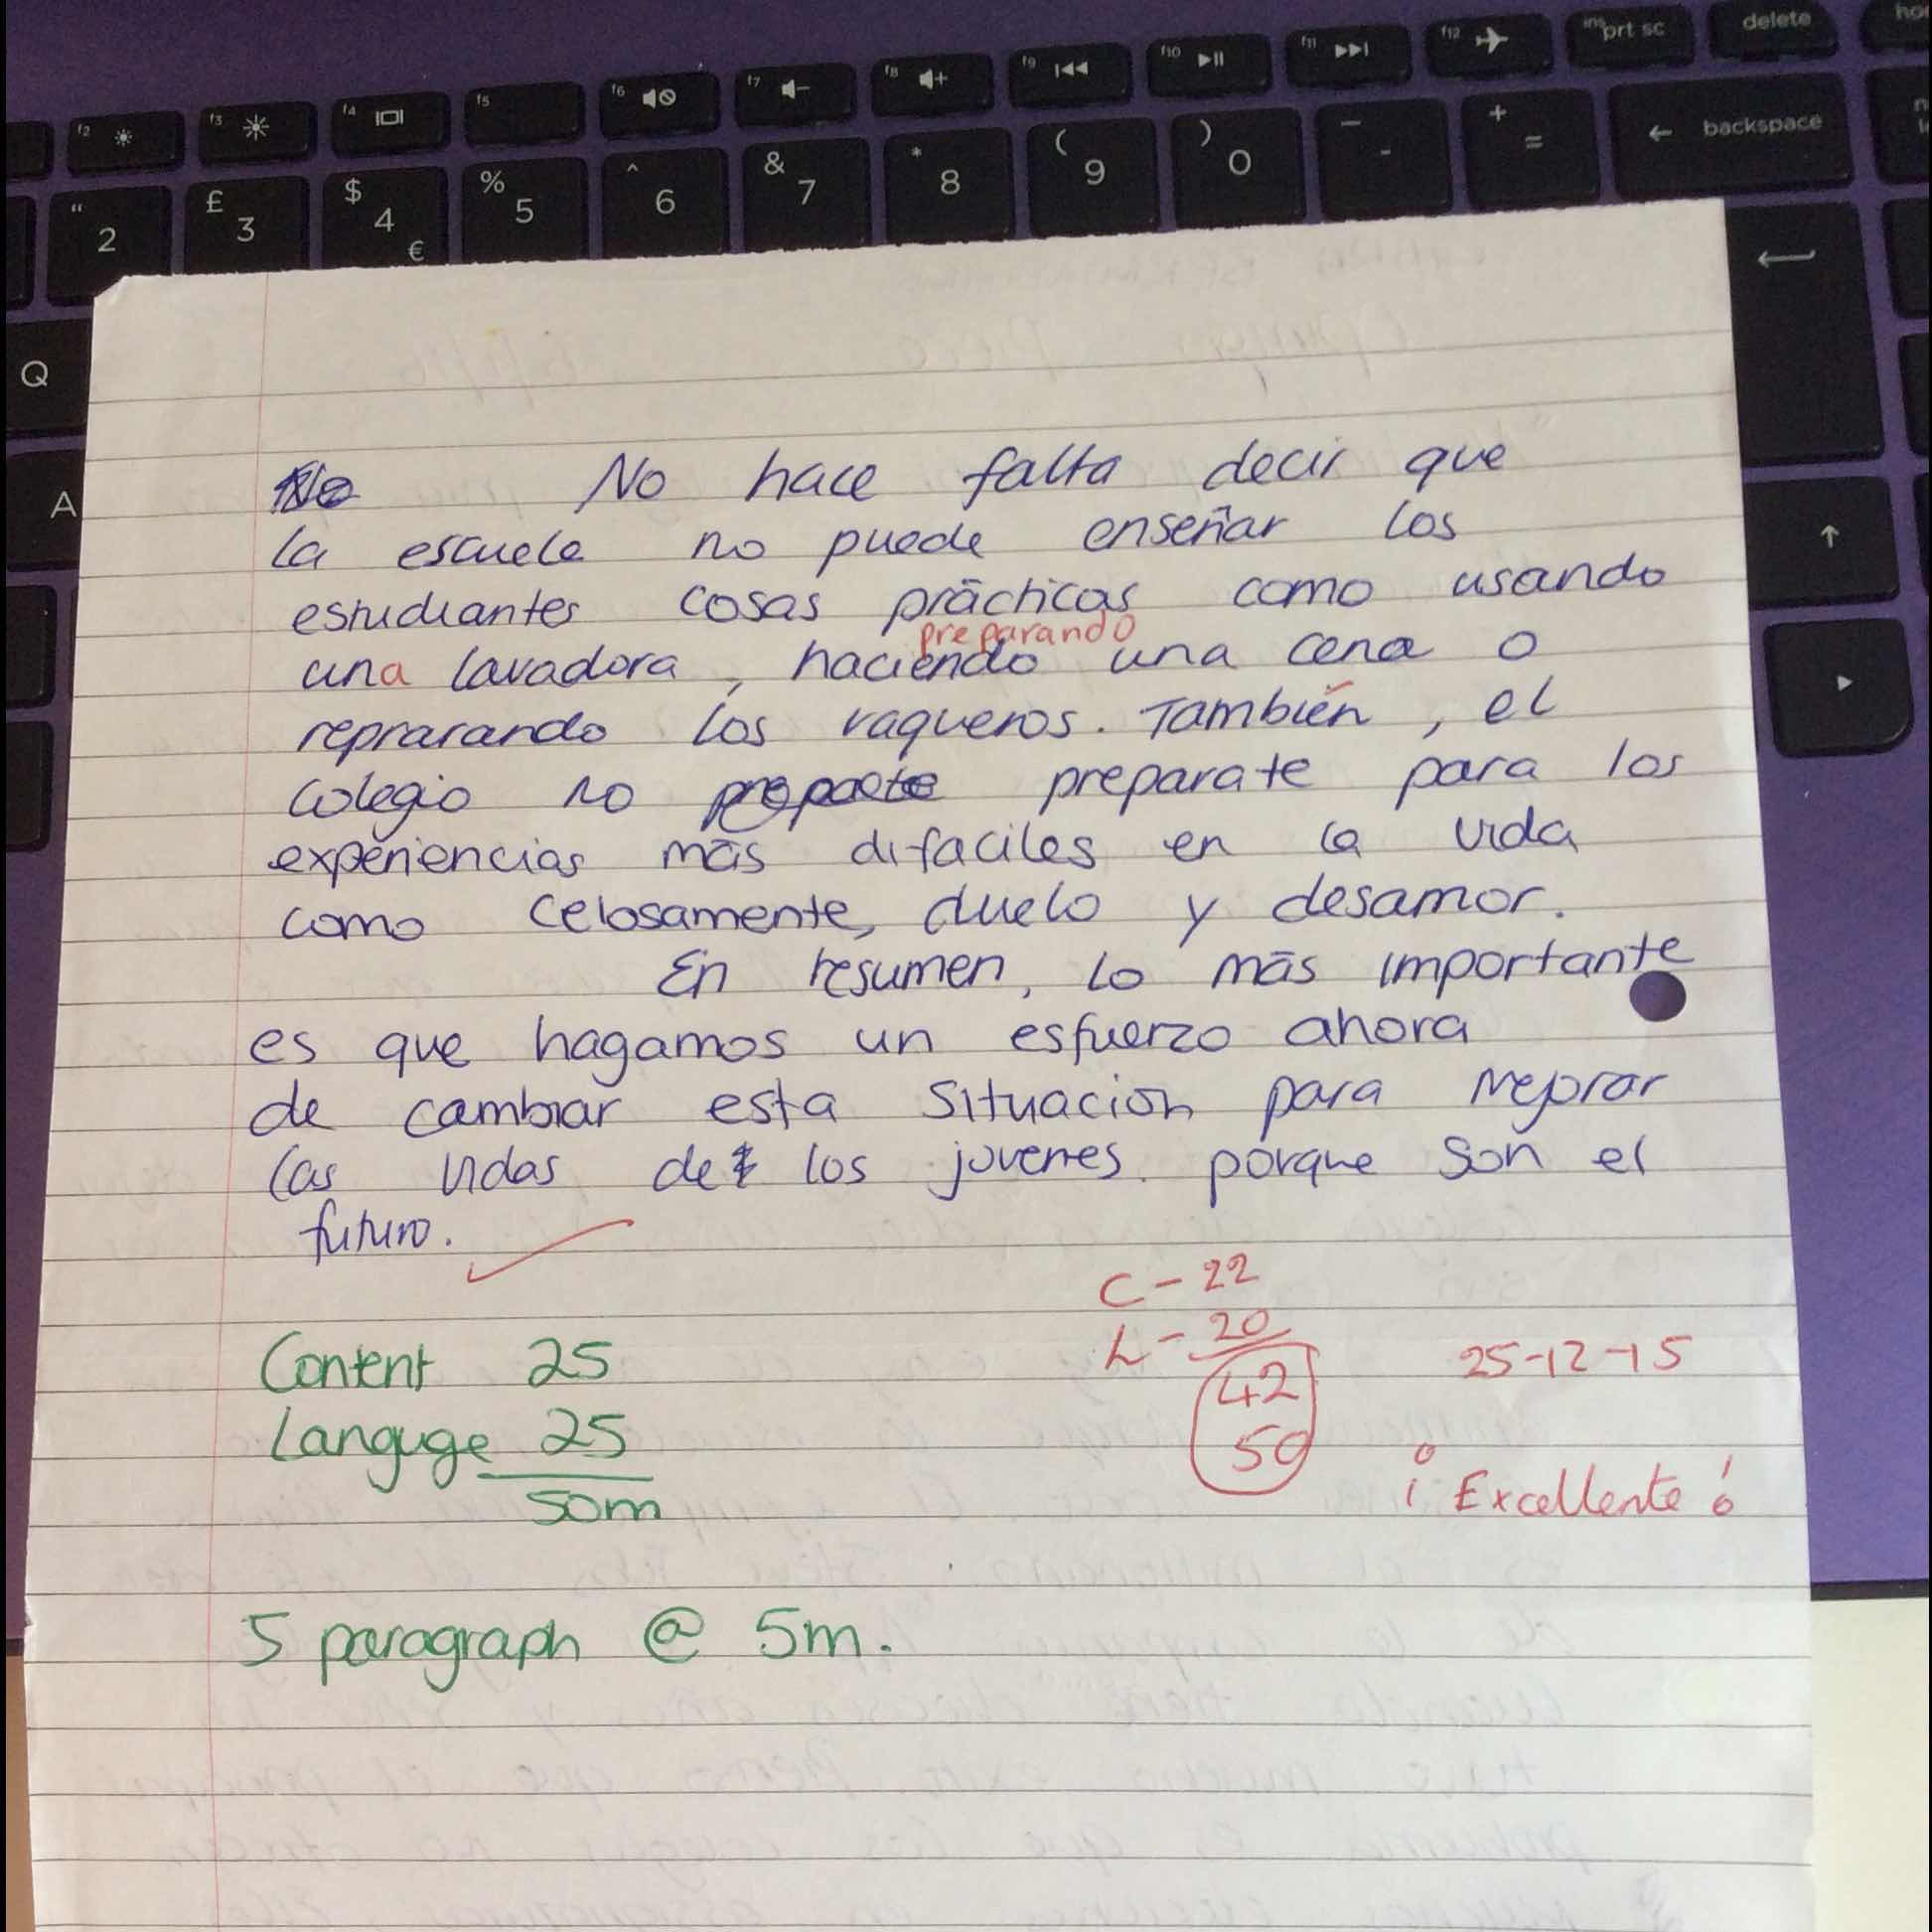 f2 f3 f4 f5 f6 f7 f8 f9 f10 f11 f12 ins prt sc delete
" 2 £ 3 $ 4 € % 5 ^ 6 & 7 * 8 ( 9 ) 0 — - + = ← backspace
Q
A
No hace falta decir que
la escuela no puede enseñar los
estudiantes cosas prácticas como usando
preparando
una lavadora, haciendo una cena o
reprarando los vaqueros. También, el
colegio no preparate para los
experiencias más difaciles en la vida
como celosamente, duelo y desamor.
En resumen, lo más importante
es que hagamos un esfuerzo ahora
de cambiar esta situación para mejorar
las vidas de los jovenes porque son el
futuro.
C - 22
L - 20
42
50
25-12-15
¡Excellente!
Content 25
Languge 25
50m
5 paragraph @ 5m.